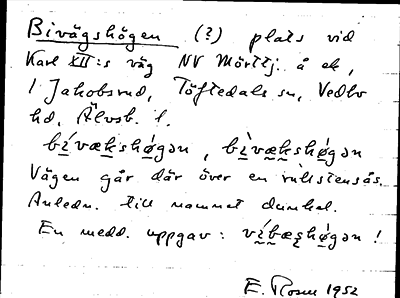 Bivägshögen (?) plats vid
Karl XII:s väg NV Mörttj. å ek,
1 Jakobsrud, Töftedals sn, Vedbo
hd, Älvsb. l.
bívækshǿgən, bìvækshǿgən
Vägen går där över en rullstensås.
Anledn. till namnet dunkel.
En medd. uppgav: víbæʂhøgən!
E. Rosen 1952